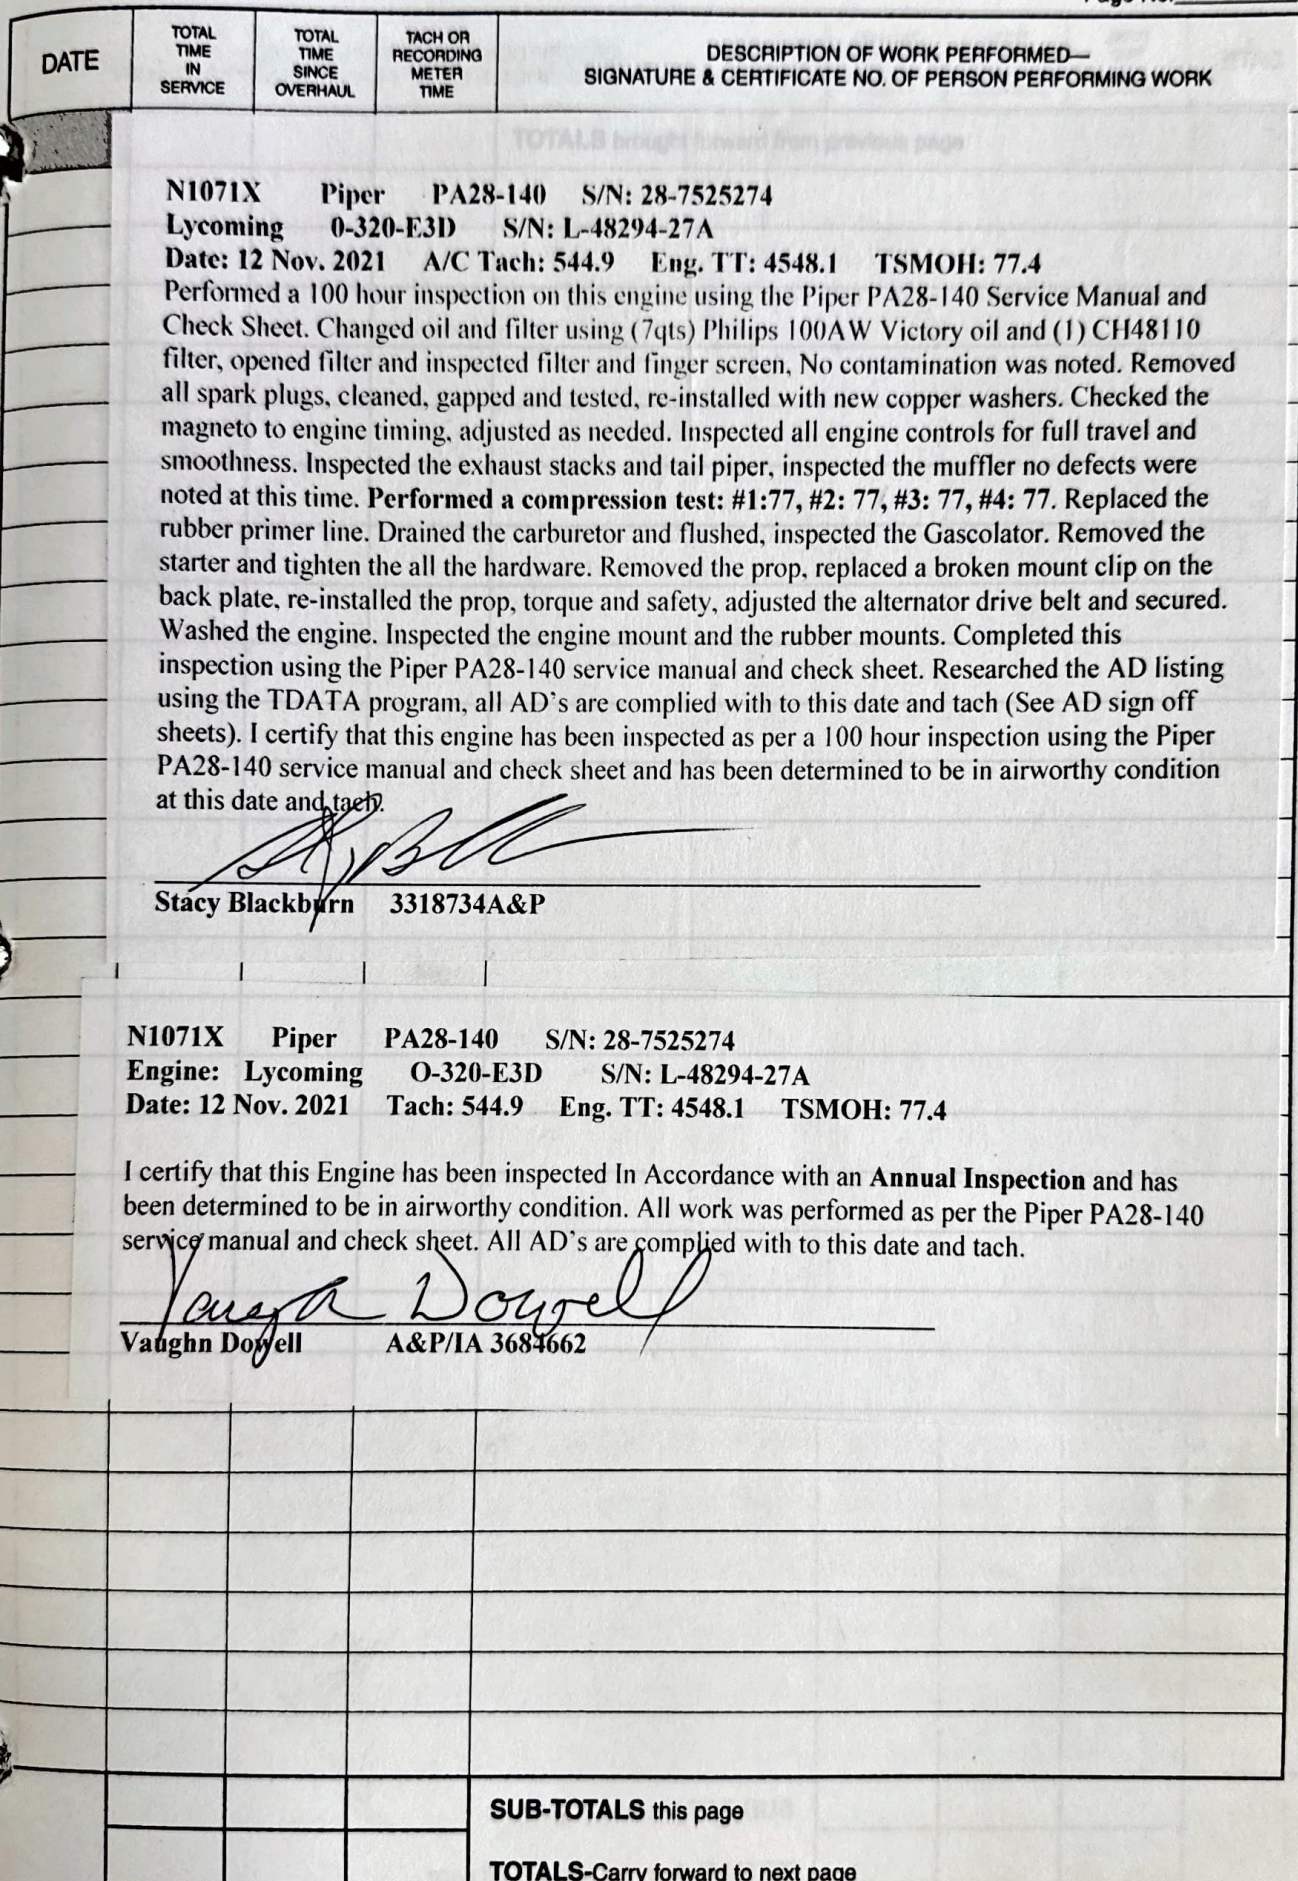 DATE
TOTAL TIME IN SERVICE
TOTAL TIME SINCE OVERHAUL
TACH OR RECORDING METER TIME
DESCRIPTION OF WORK PERFORMED—
SIGNATURE & CERTIFICATE NO. OF PERSON PERFORMING WORK
TOTALS brought forward from previous page
N1071X Piper PA28-140 S/N: 28-7525274
Lycoming 0-320-E3D S/N: L-48294-27A
Date: 12 Nov. 2021 A/C Tach: 544.9 Eng. TT: 4548.1 TSMOH: 77.4
Performed a 100 hour inspection on this engine using the Piper PA28-140 Service Manual and
Check Sheet. Changed oil and filter using (7qts) Philips 100AW Victory oil and (1) CH48110
filter, opened filter and inspected filter and finger screen, No contamination was noted. Removed
all spark plugs, cleaned, gapped and tested, re-installed with new copper washers. Checked the
magneto to engine timing, adjusted as needed. Inspected all engine controls for full travel and
smoothness. Inspected the exhaust stacks and tail piper, inspected the muffler no defects were
noted at this time. Performed a compression test: #1:77, #2: 77, #3: 77, #4: 77. Replaced the
rubber primer line. Drained the carburetor and flushed, inspected the Gascolator. Removed the
starter and tighten the all the hardware. Removed the prop, replaced a broken mount clip on the
back plate, re-installed the prop, torque and safety, adjusted the alternator drive belt and secured.
Washed the engine. Inspected the engine mount and the rubber mounts. Completed this
inspection using the Piper PA28-140 service manual and check sheet. Researched the AD listing
using the TDATA program, all AD's are complied with to this date and tach (See AD sign off
sheets). I certify that this engine has been inspected as per a 100 hour inspection using the Piper
PA28-140 service manual and check sheet and has been determined to be in airworthy condition
at this date and tach.
Stacy Blackburn 3318734A&P
N1071X Piper PA28-140 S/N: 28-7525274
Engine: Lycoming O-320-E3D S/N: L-48294-27A
Date: 12 Nov. 2021 Tach: 544.9 Eng. TT: 4548.1 TSMOH: 77.4
I certify that this Engine has been inspected In Accordance with an Annual Inspection and has
been determined to be in airworthy condition. All work was performed as per the Piper PA28-140
service manual and check sheet. All AD's are complied with to this date and tach.
Vaughn Dowell
Vaughn Dowell A&P/IA 3684662
SUB-TOTALS this page
TOTALS-Carry forward to next page